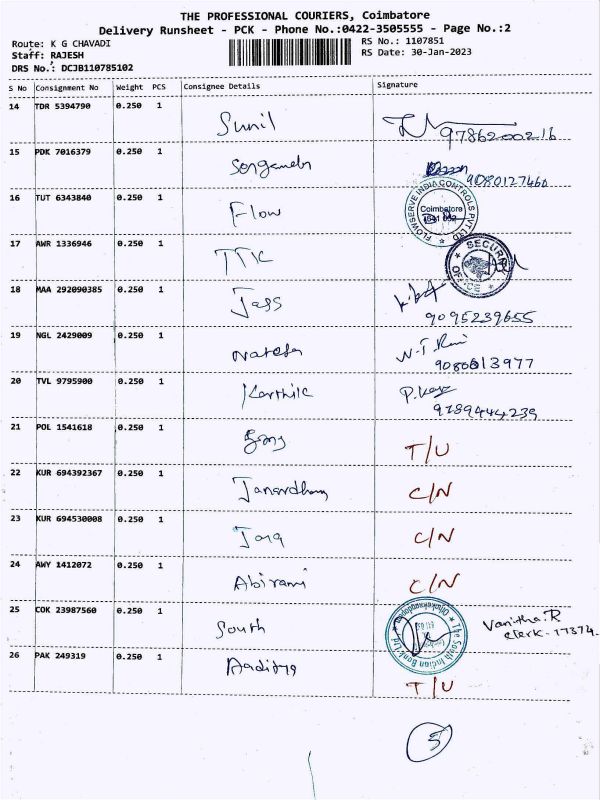 THE PROFESSIONAL COURIERS, Coimbatore
Delivery Runsheet - PCK - Phone No.:0422-3505555 - Page No.:2
Route: K G CHAVADI RS No.: 1107851
Staff: RAJESH RS Date: 30-Jan-2023
DRS No.: DCJB110785102
S No Consignment No Weight PCS Consignee Details Signature
14 TDR 5394790 0.250 1 Sunil 9786200216
15 PDK 7016379 0.250 1 9080127460
16 TUT 6343840 0.250 1 Flow FLOWSERVE INDIA CONTROLS PVT LTD Coimbatore
17 AWR 1336946 0.250 1 TTK SECURITY OFFICE
18 MAA 292090385 0.250 1 Jass 9095239655
19 NGL 2429009 0.250 1 Natesh N.T. 9080613977
20 TVL 9795900 0.250 1 Karthik 9789444239
21 POL 1541618 0.250 1 T/U
22 KUR 694392367 0.250 1 Janardhan C/N
23 KUR 694530008 0.250 1 C/N
24 AWY 1412072 0.250 1 Abirami C/N
25 COK 23987560 0.250 1 South The South Indian Bank Ltd Vanitha.R
Clerk - 17374
26 PAK 249319 0.250 1 Aaditya T/U
5